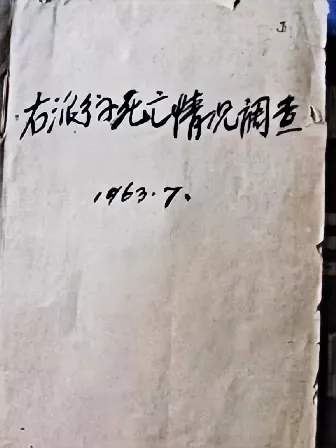 右派分子死亡情况調查
1963.7.